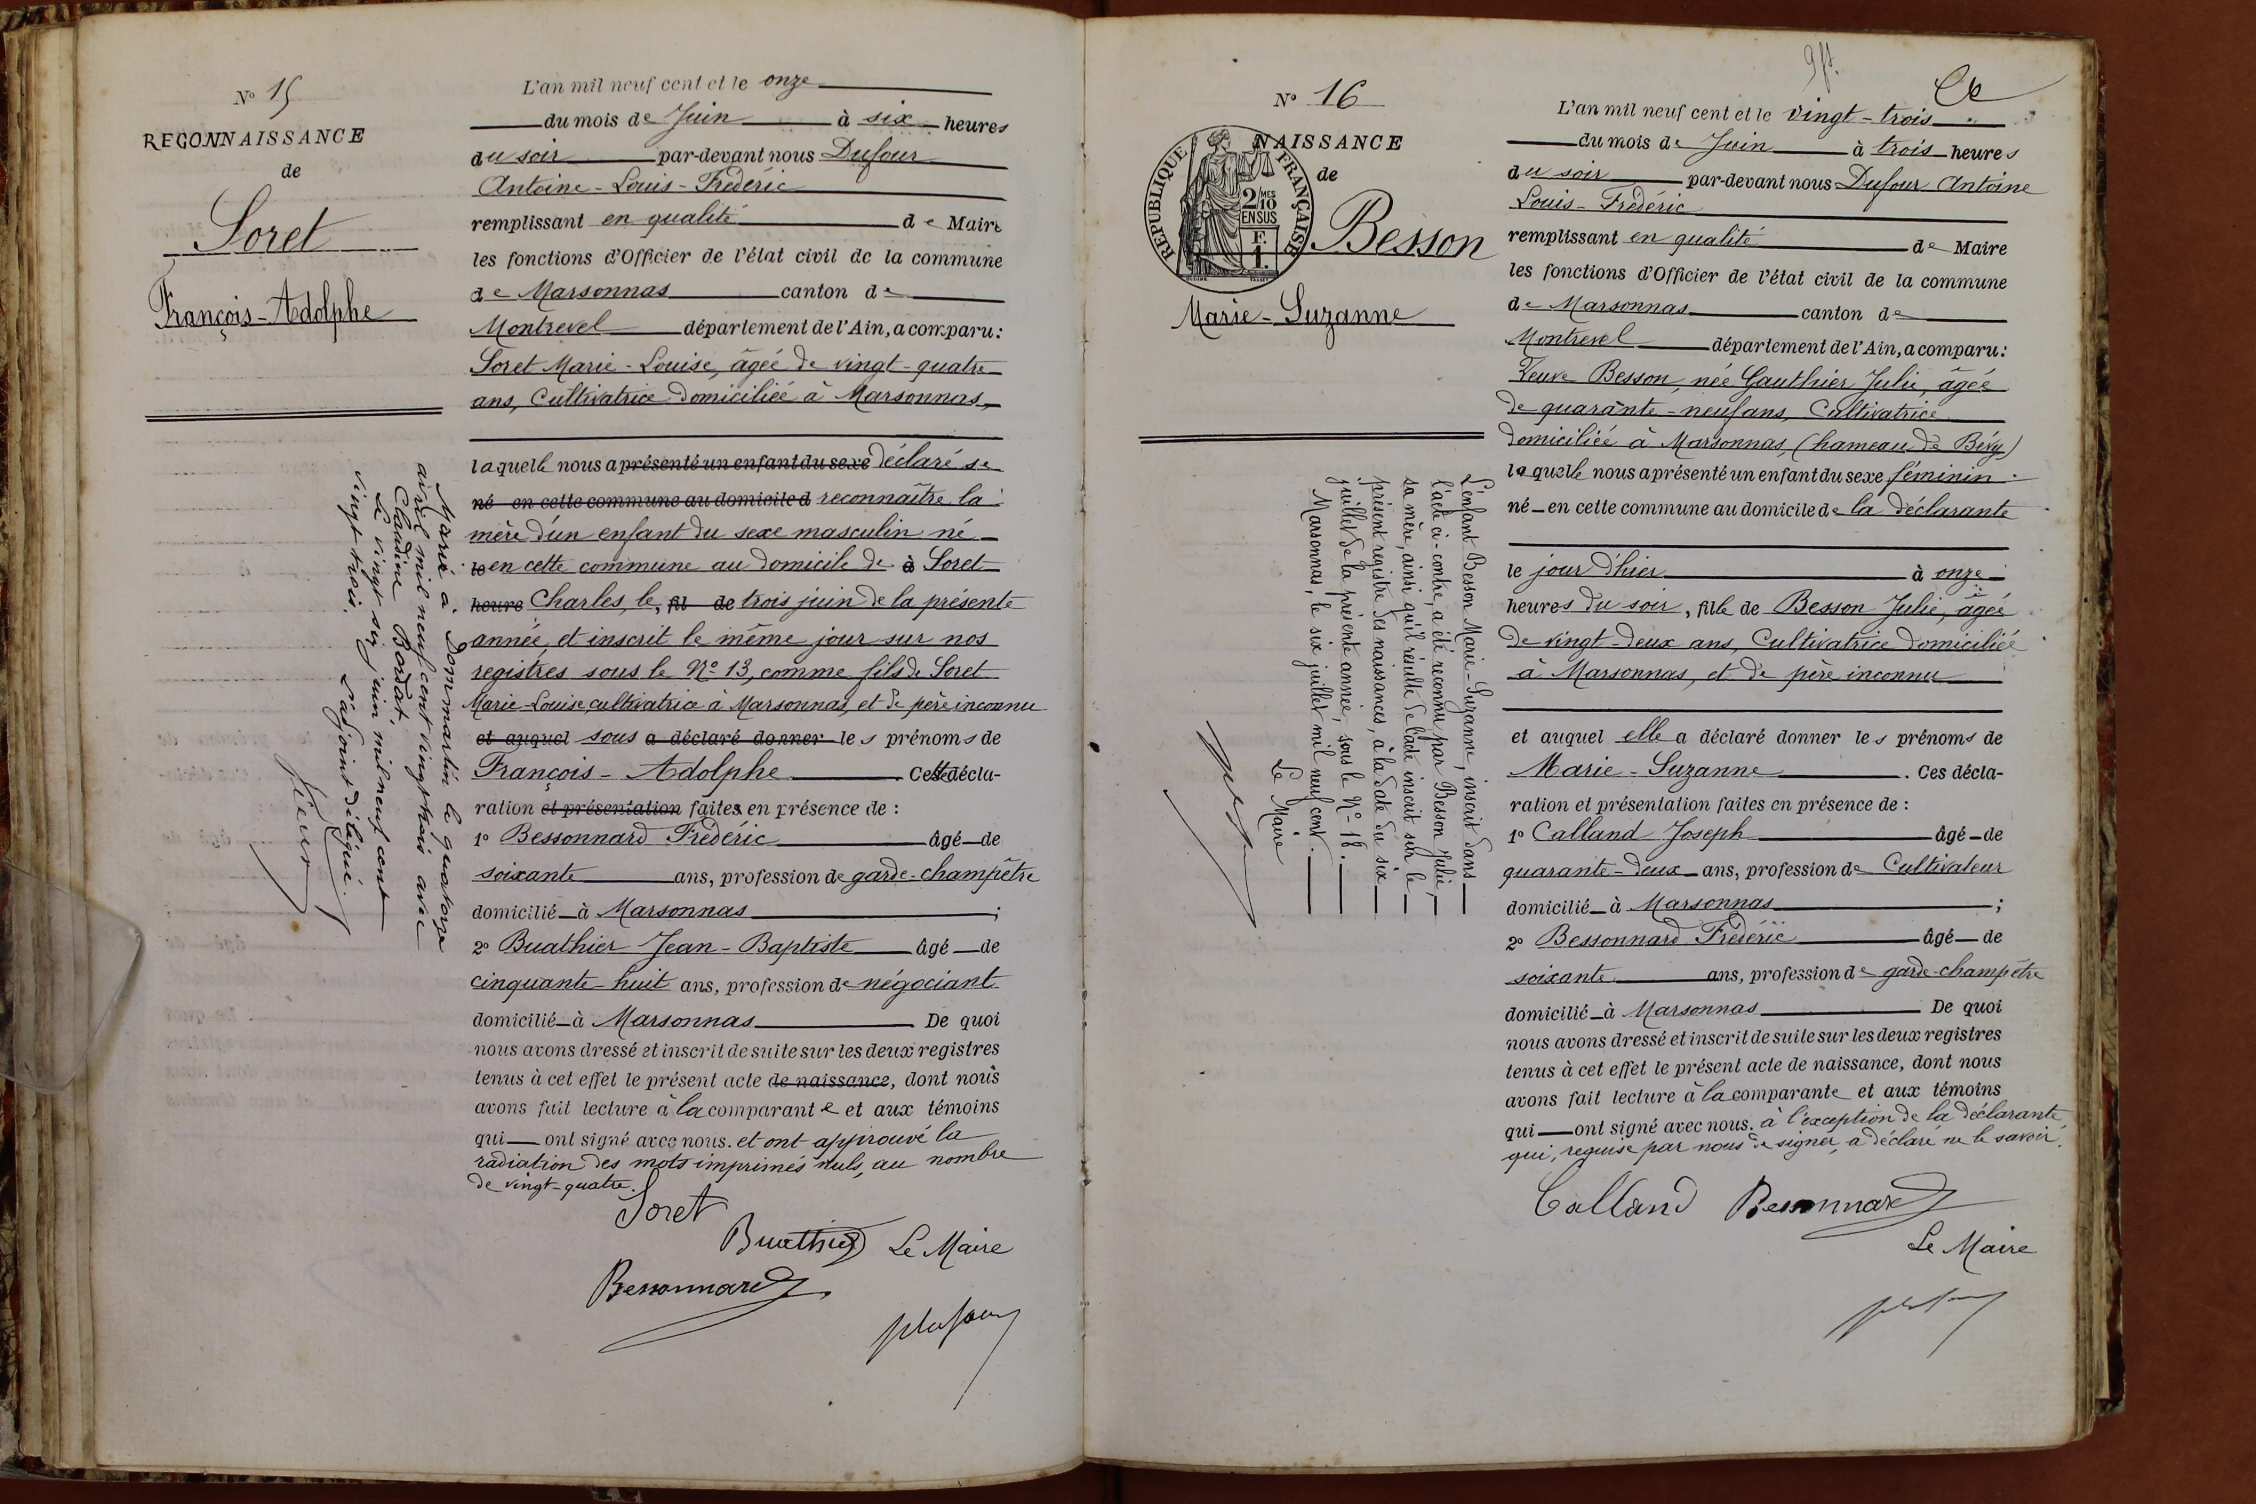 Nº 15
RECONNAISSANCE
de
Soret
François-Adolphe
L'an mil neuf cent et le onze
du mois de Juin à six heures
du soir par-devant nous Dufour
Antoine-Louis-Frédéric
remplissant en qualité de Maire
les fonctions d'Officier de l'état civil de la commune
de Marsonnas canton de
Montrevel département de l'Ain, a comparu :
Soret Marie-Louise, âgée de vingt-quatre
ans, Cultivatrice domiciliée à Marsonnas,
laquelle nous a présenté un enfant du sexe déclaré se
né en cette commune au domicile d reconnaître la
mère d'un enfant du sexe masculin né
le en cette commune au domicile de à Soret
heure Charles, le, fil de trois juin de la présente
année, et inscrit le même jour sur nos
registres sous le Nº 13, comme fils de Soret
Marie-Louise, cultivatrice à Marsonnas, et de père inconnu
et auquel sous a déclaré donner les prénoms de
François-Adolphe. Cette décla-
ration et présentation faites en présence de :
1º Bessonnard Frédéric âgé de
soixante ans, profession de garde-champêtre
domicilié à Marsonnas ;
2º Buathier Jean-Baptiste âgé de
cinquante-huit ans, profession de négociant
domicilié à Marsonnas De quoi
nous avons dressé et inscrit de suite sur les deux registres
tenus à cet effet le présent acte de naissance, dont nous
avons fait lecture à la comparante et aux témoins
qui ont signé avec nous. et ont approuvé la
radiation des mots imprimés nuls, au nombre
de vingt-quatre.
Soret
Buathier Le Maire
Bessonnard
Marié à Dommartin le quatorze
avril mil neuf cent vingt trois avec
Claudine Bordat.
Le vingt six juin mil neuf cent
vingt trois. L'adjoint délégué.
Nº 16
NAISSANCE
de
RÉPUBLIQUE FRANÇAISE
2/10 MES
EN SUS
F.
1.
Besson
Marie-Suzanne
L'an mil neuf cent et le vingt-trois
du mois de Juin à trois heures
du soir par-devant nous Dufour Antoine
Louis-Frédéric
remplissant en qualité de Maire
les fonctions d'Officier de l'état civil de la commune
de Marsonnas canton de
Montrevel département de l'Ain, a comparu :
Veuve Besson, née Gauthier Julie, âgée
de quarante-neuf ans, Cultivatrice
domiciliée à Marsonnas, (hameau de Bévy)
laquelle nous a présenté un enfant du sexe féminin
né en cette commune au domicile de la déclarante
le jour d'hier à onze
heures du soir, fille de Besson Julie, âgée
de vingt-deux ans, Cultivatrice domiciliée
à Marsonnas, et de père inconnu
et auquel elle a déclaré donner les prénoms de
Marie-Suzanne. Ces décla-
ration et présentation faites en présence de :
1º Calland Joseph âgé de
quarante-deux ans, profession de Cultivateur
domicilié à Marsonnas ;
2º Bessonnard Frédéric âgé de
soixante ans, profession de garde-champêtre
domicilié à Marsonnas De quoi
nous avons dressé et inscrit de suite sur les deux registres
tenus à cet effet le présent acte de naissance, dont nous
avons fait lecture à la comparante et aux témoins
qui ont signé avec nous. à l'exception de la déclarante
qui, requise par nous de signer, a déclaré ne le savoir.
Calland Bessonnard
Le Maire
L'enfant Besson Marie-Suzanne, inscrit dans
l'acte ci-contre, a été reconnu par Besson Julie,
sa mère, ainsi qu'il résulte de l'acte inscrit sur le
présent registre des naissances, à la date du six
juillet de la présente année, sous le Nº 18.
Marsonnas, le six juillet mil neuf cent.
Le Maire